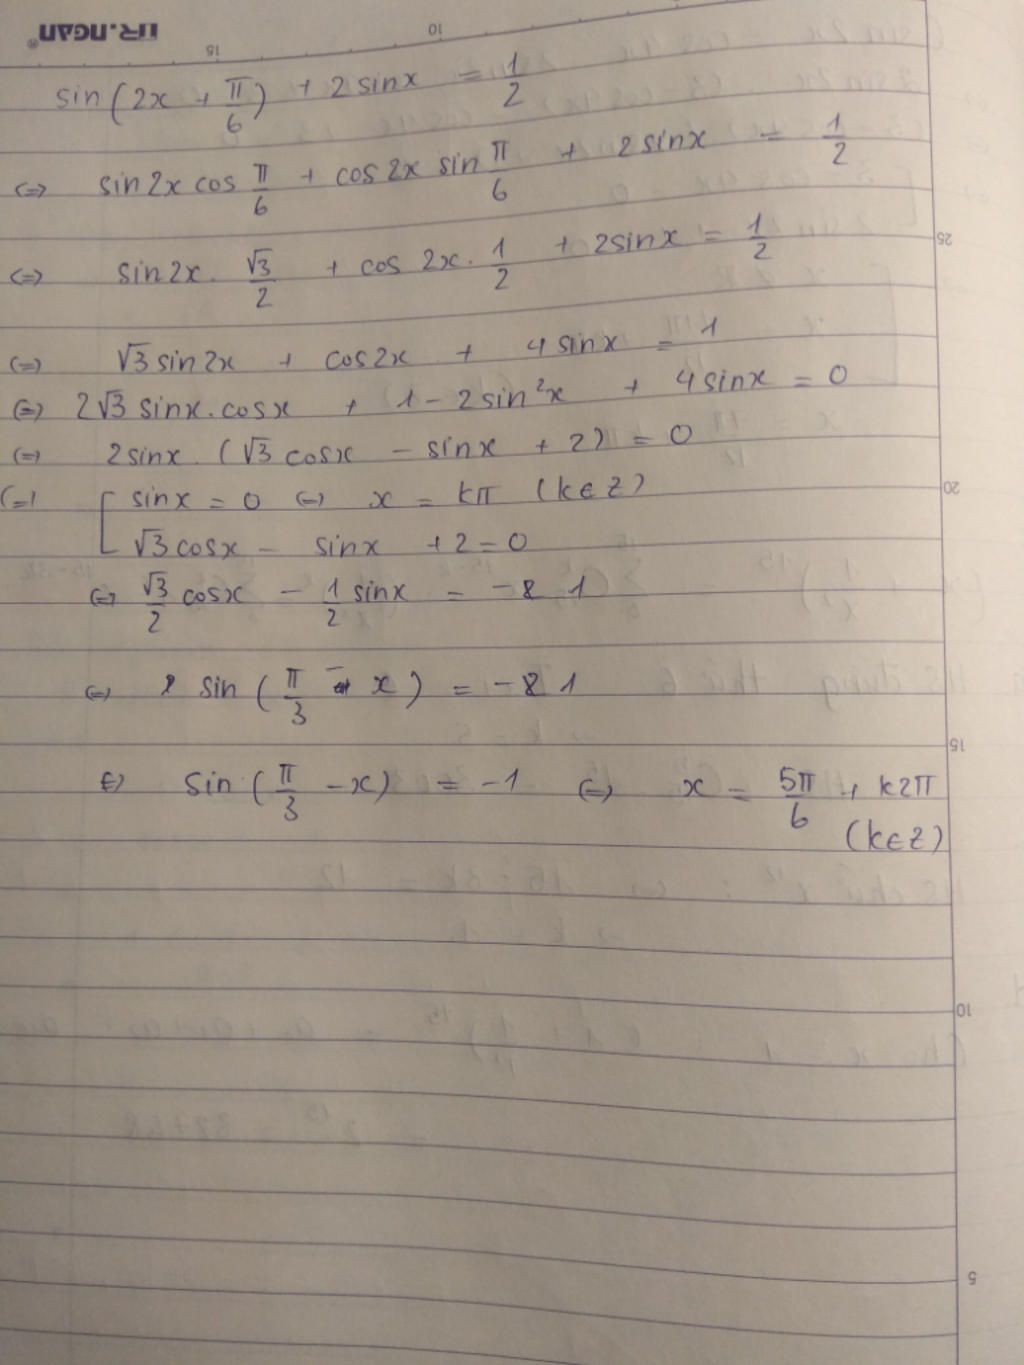 TR.NGAN®
15 10
sin(2x + π/6) + 2 sinx = 1/2
(=) sin2x cos π/6 + cos2x sin π/6 + 2sinx = 1/2
25
(=) sin2x. √3/2 + cos 2x. 1/2 + 2sinx = 1/2
(=) √3 sin2x + cos2x + 4 sinx = 1
(=) 2√3 sinx.cosx + 1 - 2sin²x + 4sinx = 0
(=) 2sinx. (√3 cosx - sinx + 2) = 0
20
(=) [ sinx = 0 (=) x = kπ (k∈Z)
√3 cosx - sinx + 2 = 0
(=) √3/2 cosx - 1/2 sinx = - 1
(=) sin(π/3 - x) = - 1
15
(=) sin(π/3 - x) = -1 (=) x = 5π/6 + k2π
(k∈Z)
10
5